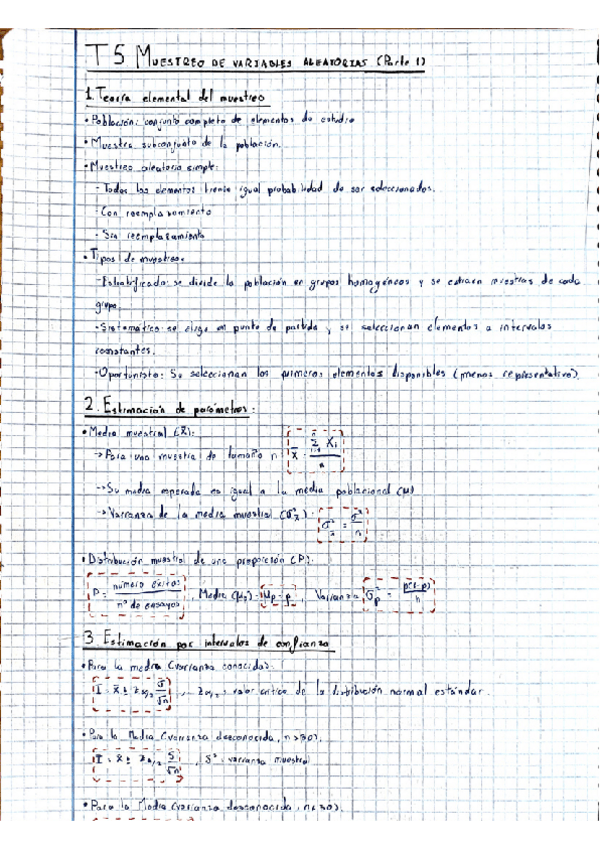 T5 MUESTREO DE VARIABLES ALEATORIAS (Parte 1)
1. Teoría elemental del muestreo
• Población: conjunto completo de elementos de estudio
• Muestra: subconjunto de la población.
• Muestreo aleatorio simple:
- Todos los elementos tienen igual probabilidad de ser seleccionados.
- Con reemplazamiento
- Sin reemplazamiento
• Tipos de muestreo:
- Estratificado: se divide la población en grupos homogéneos y se extraen muestras de cada
grupo.
- Sistemático: se elige un punto de partida y se seleccionan elementos a intervalos
constantes.
- Oportunista: Se seleccionan los primeros elementos disponibles (menos representativo).
2. Estimación de parámetros:
• Media muestral (X̄):
→ Para una muestra de tamaño n: X̄ = Σ Xi / n
→ Su media esperada es igual a la media poblacional (μ)
→ Varianza de la media muestral (σ²x̄): σ²x̄ = σ² / n
• Distribución muestral de una proporción (P):
P = número éxitos / nº de ensayos , Media (μp) = μp = p , Varianza = σp = p(1-p) / n
3 Estimación por intervalos de confianza
• Para la media (varianza conocida):
I = x̄ ± zα/2 σ/√n , zα/2 = valor crítico de la distribución normal estándar.
• Para la Media (varianza desconocida, n>30).
I = x̄ ± zα/2 S/√n , S² = varianza muestral
• Para la Media (varianza desconocida, n<30).